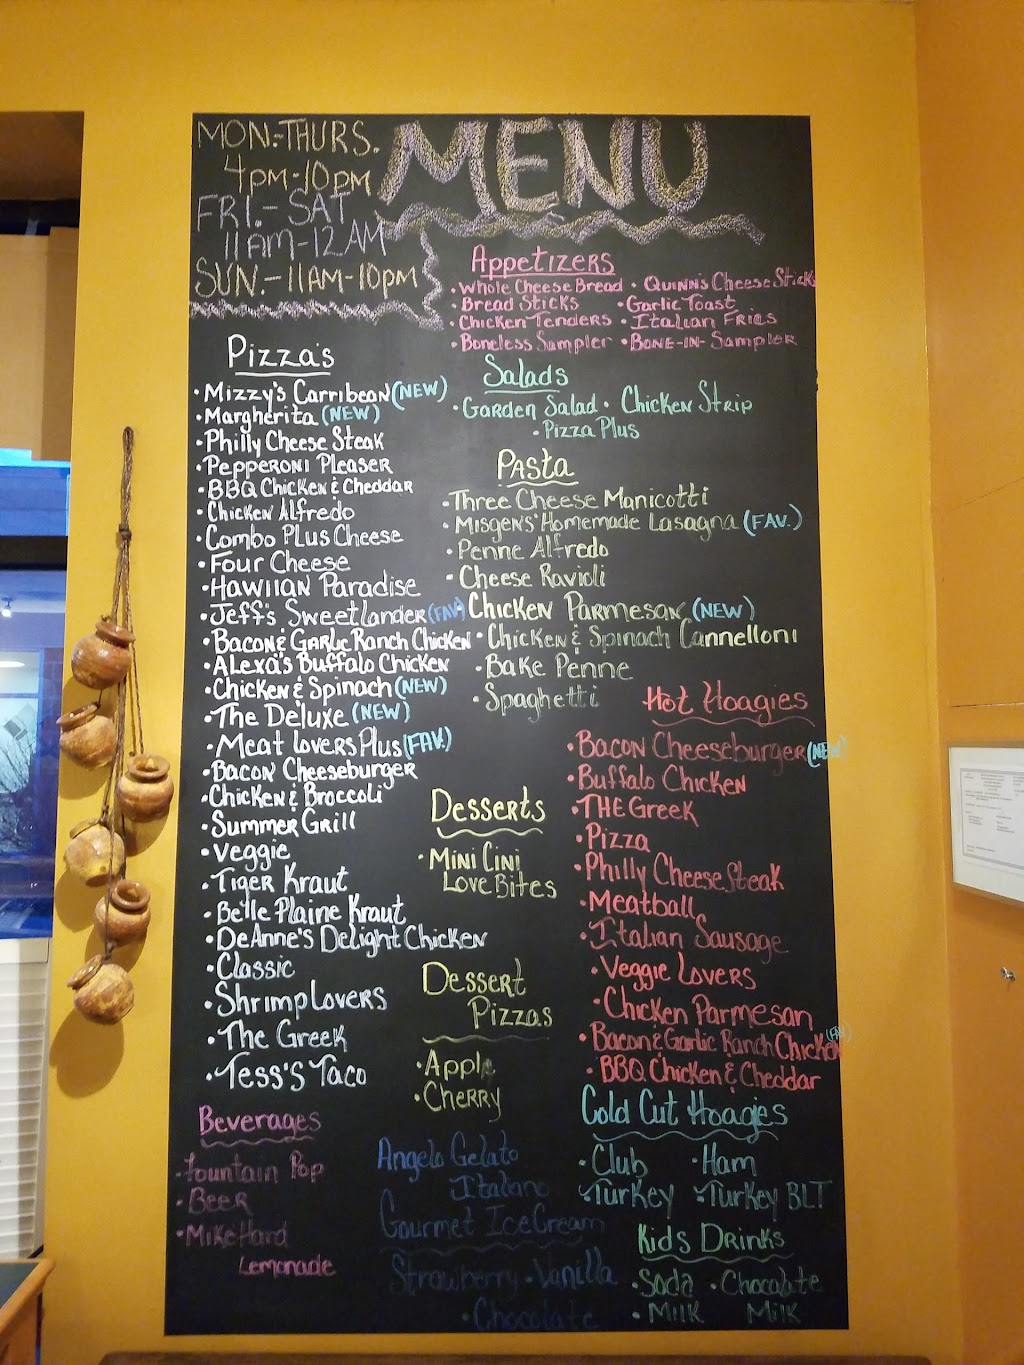 MENU
MON.-THURS.
4PM-10PM
FRI.-SAT
11AM-12AM
SUN.-11AM-10PM
Appetizers
• Whole Cheese Bread • Quinn's Cheese Sticks
• Bread Sticks • Garlic Toast
• Chicken Tenders • Italian Fries
• Boneless Sampler • Bone-in-Sampler
Salads
• Garden Salad • Chicken Strip
• Pizza Plus
Pizza's
• Mizzy's Carribean (NEW)
• Margherita (NEW)
• Philly Cheese Steak
• Pepperoni Pleaser
• BBQ Chicken & Cheddar
• Chicken Alfredo
• Combo Plus Cheese
• Four Cheese
• Hawiian Paradise
• Jeff's Sweetlander (FAV)
• Bacon & Garlic Ranch Chicken
• Alexa's Buffalo Chicken
• Chicken & Spinach (NEW)
• The Deluxe (NEW)
• Meat Lovers Plus (FAV.)
• Bacon Cheeseburger
• Chicken & Broccoli
• Summer Grill
• Veggie
• Tiger Kraut
• Belle Plaine Kraut
• DeAnne's Delight Chicken
• Classic
• Shrimp Lovers
• The Greek
• Tess's Taco
Pasta
• Three Cheese Manicotti
• Misgens' Homemade Lasagna (FAV.)
• Penne Alfredo
• Cheese Ravioli
• Chicken Parmesan (NEW)
• Chicken & Spinach Cannelloni
• Bake Penne
• Spaghetti
Hot Hoagies
• Bacon Cheeseburger (NEW)
• Buffalo Chicken
• THE Greek
• Pizza
• Philly Cheese Steak
• Meatball
• Italian Sausage
• Veggie Lovers
• Chicken Parmesan
• Bacon & Garlic Ranch Chicken (FAV.)
• BBQ Chicken & Cheddar
Desserts
• Mini Cini
Love Bites
Dessert
Pizzas
• Apple
• Cherry
Cold Cut Hoagies
• Club • Ham
• Turkey • Turkey BLT
Beverages
• Fountain Pop
• Beer
• Mike Hard
Lemonade
Angelo Gelato
Italiano
Gourmet Ice Cream
Strawberry • Vanilla
• Chocolate
Kids Drinks
• Soda • Chocolate
• Milk Milk